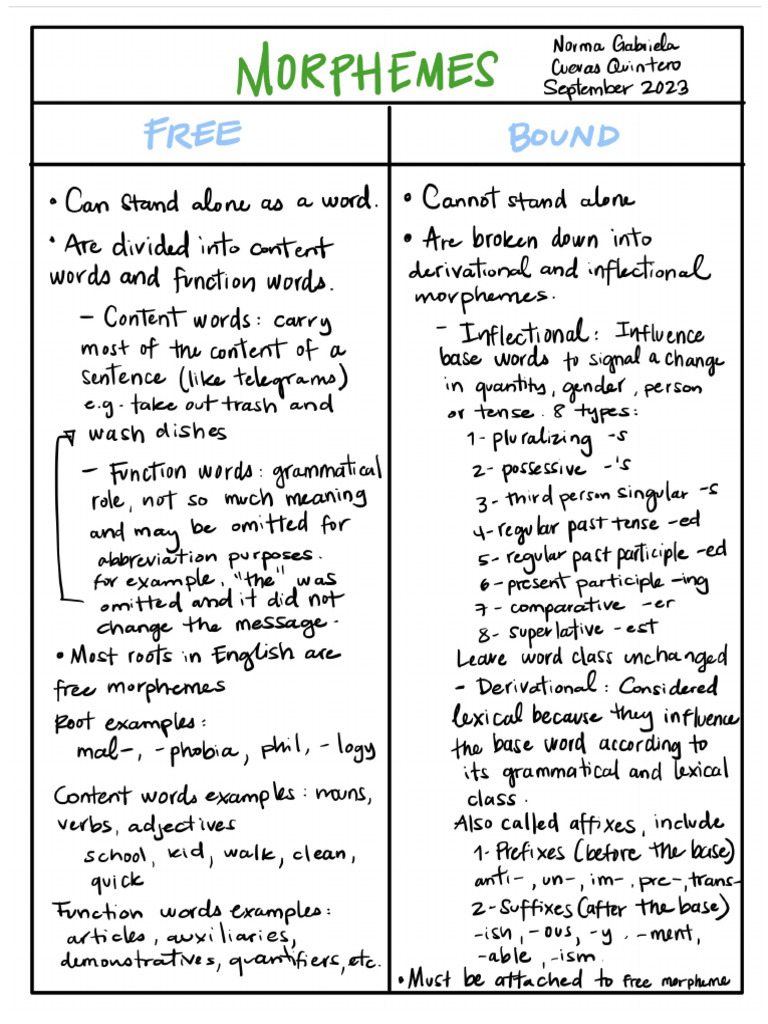 MORPHEMES
Norma Gabriela
Cuevas Quintero
September 2023
FREE
• Can stand alone as a word.
• Are divided into content
words and function words.
- Content words: carry
most of the content of a
sentence (like telegrams)
e.g. take out trash and
wash dishes
- Function words: grammatical
role, not so much meaning
and may be omitted for
abbreviation purposes.
for example, "the" was
omitted and it did not
change the message.
• Most roots in English are
free morphemes
Root examples:
mal-, -phobia, phil, -logy
Content words examples: nouns,
verbs, adjectives
school, kid, walk, clean,
quick
Function words examples:
articles, auxiliaries,
demonstratives, quantifiers, etc.
BOUND
• Cannot stand alone
• Are broken down into
derivational and inflectional
morphemes.
- Inflectional: Influence
base words to signal a change
in quantity, gender, person
or tense. 8 types:
1- pluralizing -s
2- possessive -'s
3- third person singular -s
4- regular past tense -ed
5- regular past participle -ed
6- present participle -ing
7- comparative -er
8- superlative -est
Leave word class unchanged
- Derivational: Considered
lexical because they influence
the base word according to
its grammatical and lexical
class.
Also called affixes, include
1- Prefixes (before the base)
anti-, un-, im-, pre-, trans-
2- Suffixes (after the base)
-ish, -ous, -y. -ment,
-able, -ism.
• Must be attached to free morpheme